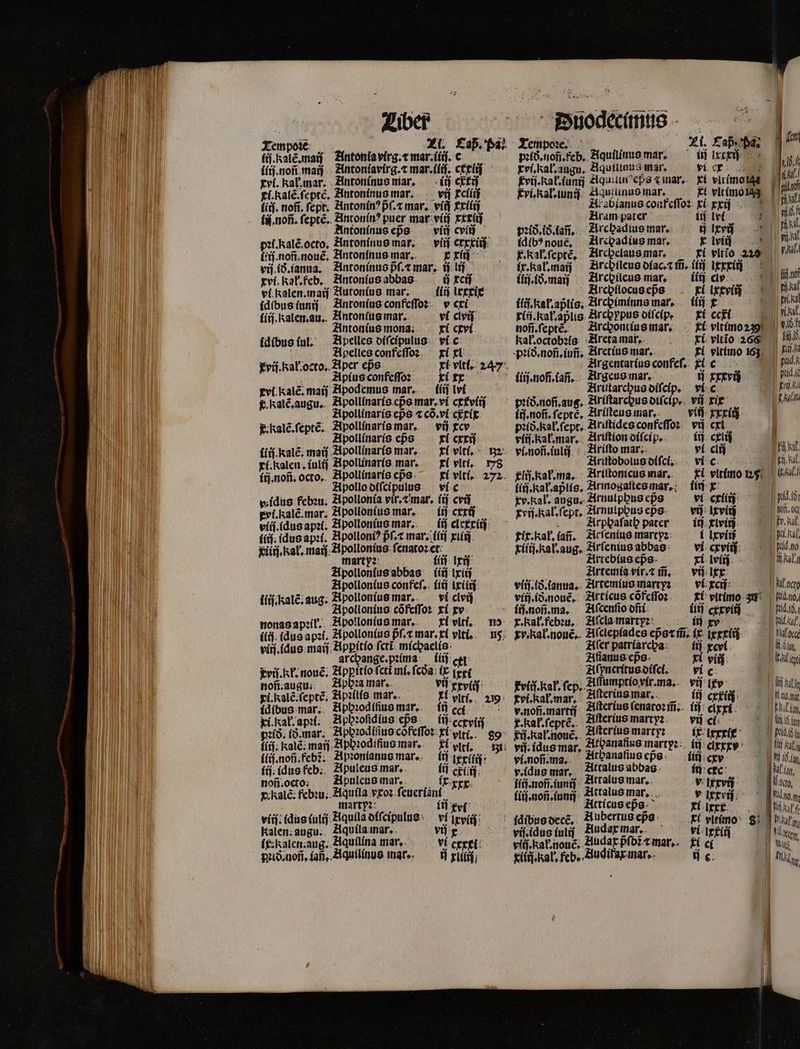 Liber
Tempore Li. Cap. pa.
iij.kalē.maij Antonia virg.⁊ mar. iiij. c
iiij.noñ maij Antonia virg.⁊ mar. iiij. cxxiij
xvi. kal.mar. Antoninus mar. iij cxxij
xi.kalē.septē. Antoninus mar. vij xcliij
iiij. noñ. sept. Antonin⁹ pr̄.⁊ mar. viij xxiiij
iij.noñ. septē. Antonin⁹ puer mar. viij xxxiij
Antoninus eps̄ viij cviij
pri.kalē.octo. Antoninus mar. viij cxxxiij
iiij.noñ.nouē. Antoninus mar. x xiij
vij.id.ianua. Antoninus pr̄.⁊ mar. ij lij
xvi. kal.feb. Antonius abbas ij xcij
vi.kalen.maij Antonius mar. iiij lxxxix
idibus iunij Antonius confessor v cxi
iiij.kalen.au. Antonius mar. vi clvij
Antonius mona. xi cxvi
idibus iul. Apelles discipulus vi c
Apelles confessor xi xl
xvij.kal.octo. Aper eps̄ xi vlti. 247
Apius confessor xi xx
xvi.kalē. maij Apodemus mar. iiij lvi
x.kalē.augu. Apollinaris eps̄ mar. vi cxxviij
Apollinaris eps̄ ⁊ cō. vi cxxix
x.kalē.septē. Apollinaris mar. vij xcv
Apollinaris eps̄ xi cxxij
iiij.kalē. maij Apollinaris mar. xi vlti. 132
xi.kalen. iulij Apollinaris mar. xi vlti. 178
iij.noñ. octo. Apollinaris eps̄ xi vlti. 272
Apollo discipulus vi c
v.idus febru. Apollonia vir.⁊ mar. iij cvij
xvi.kalē.mar. Apollonius mar. iij cxxij
viij.idus apri. Apollonius mar. iij clxxxiij
iiij. idus apri. Apolloni⁹ pr̄.⁊ mar. iiij xliij
xiiij.kal. maij Apollonius senator et
martyr iiij lxij
Apollonius abbas iiij lxiij
Apollonius confes. iiij lxiiij
iiij.kalē. aug. Apollonius mar. vi clvij
Apollonius cōfessor xi xv
nonas april. Apollonius mar. xi vlti. 110
iiij. idus apri. Apollonius pr̄.⁊ mar. xi vlti. 115
viij.idus maij Appitio sctī michaelis
archange. prima iiij cxl
xvij.kl. nouē. Appitio sctī mi. scd̄a ix lxxi
noñ.augu. Aphra mar. vij xxviij
xi.kalē.septē. Aprilis mar. xi vlti. 219
idibus mar. Aphrodisius mar. iij ccl
xi.kal. apri. Aphrosidius eps̄ iij ccxviij
prid. id.mar. Aphrodisius cōfessor xi vlti. 89
iiij. kalē. maij Aphrodisius mar. xi vlti. 131
iiij.noñ.febr. Apronianus mar. iij lxxiiij
iij. idus feb. Apuleus mar. iij cxi.ij
noñ.octo. Apuleus mar. ix xxx
x.kalē. febru. Aquila vxor seueriani
martyr iij xvi
viij. idus iulij Aquila discipulus vi lxviij
kalen. augu. Aquila mar. vij x
ix.kalen.aug. Aquilina mar. vi cxxxi
prid.noñ. iañ. Aquilinus mar. ij xliiij
Duodecimus
Tempore. Li. Cap. pa.
prid.noñ.feb. Aquilinus mar. iij lxxxij
xvi.kal.augu. Aquilinus mar. vi cx
xvij.kal.iunij Aquilin⁹ eps̄ ⁊ mar. xi vltimo 144
xvi.kal.iunij Aquilinus mar. xi vltimo 143
Arabianus confessor xi xxij
Aram pater iij lvi
prid.id.iañ. Archadius mar. ij lxvij
idib⁹ nouē. Archadius mar. x lviij
x.kal.septē. Archelaus mar. xi vltio 220
ix.kal.maij Archileus diac.⁊ m̄. iiij lxxxiij
iiij.id.maij Archileus mar. iiij clv
Archilocus eps̄ xi lxxviij
iiij.kal.aplis. Archiminus mar. iiij x
xiij.kal.aplis Archyppus discip. xi ccxi
noñ.septē. Archontius mar. xi vltimo 239
kal.octobris Areta mar. xi vltio 266
prid.noñ.iuñ. Aretius mar. xi vltimo 163
Argentarius confes. xi c
iiij.noñ.iañ. Argeus mar. ij xxxvij
Aristarchus discip. vi c
prid.noñ.aug. Aristarchus discip. vij xix
iij.noñ. septē. Aristeus mar. viij xxxiij
prid.kal.sept. Aristides confessor vij cxl
viij.kal.mar. Aristion discip. iij cxlij
vi.noñ.iulij Aristo mar. vi clij
Aristobolus disci. vi c
xiij.kal.ma. Aristonicus mar. xi vltimo 125
iiij.kal.aplis. Armogastes mar. iiij x
xv.kal. augu. Arnulphus eps̄ vi cxliij
xvij.kal.sept. Arnulphus eps̄ vij lxviij
Arphasath pater iij xlviij
xix.kal. iañ. Arsenius martyr i lxviij
xiiij.kal.aug. Arsenius abbas vi cxviij
Artebius eps̄ xi lviij
Artemia vir.⁊ m̄. vij lxx
viij.id.ianua. Artemius martyr vi xcij
viij.id.nouē. Articus cōfessor xi vltimo
iij.noñ.ma. Ascensio dñi iiij cxxviij
x.kal.febru. Ascla martyr iij xv
xv.kal.nouē. Asclepiades eps̄ ⁊ m̄. ix lxxxiij
Aser patriarcha iij xcvi
Asianus eps̄ xi viij
Asyncritus disci. vi c
xviij.kal. sep. Assumptio vir.ma. vij lxv
xvi.kal.mar. Asterius mar. iij cxxiij
v.noñ.martij Asterius senator m̄. iij clxxi
x.kal.septē. Asterius martyr vij ci
xij.kal.nouē. Asterius martyr ix lxxxix
vij. idus mar. Athanasius martyr iij clxxxv
vi.noñ.ma. Athanasius eps̄ iiij cxv
v.idus mar. Attalus abbas iij cxc
iiij.noñ.iunij Attalus mar. v lxxvij
iiij.noñ.iunij Attalus mar. v lxxvij
Atticus eps̄ xi lxxx
idibus decē. Aubertus eps̄ xi vltimo
vij.idus iulij Audax mar. vi lxxiij
viij.kal.nouē. Audax pr̄bi ⁊ mar. xi ci
xiiij.kal. feb. Audifax mar. ij c